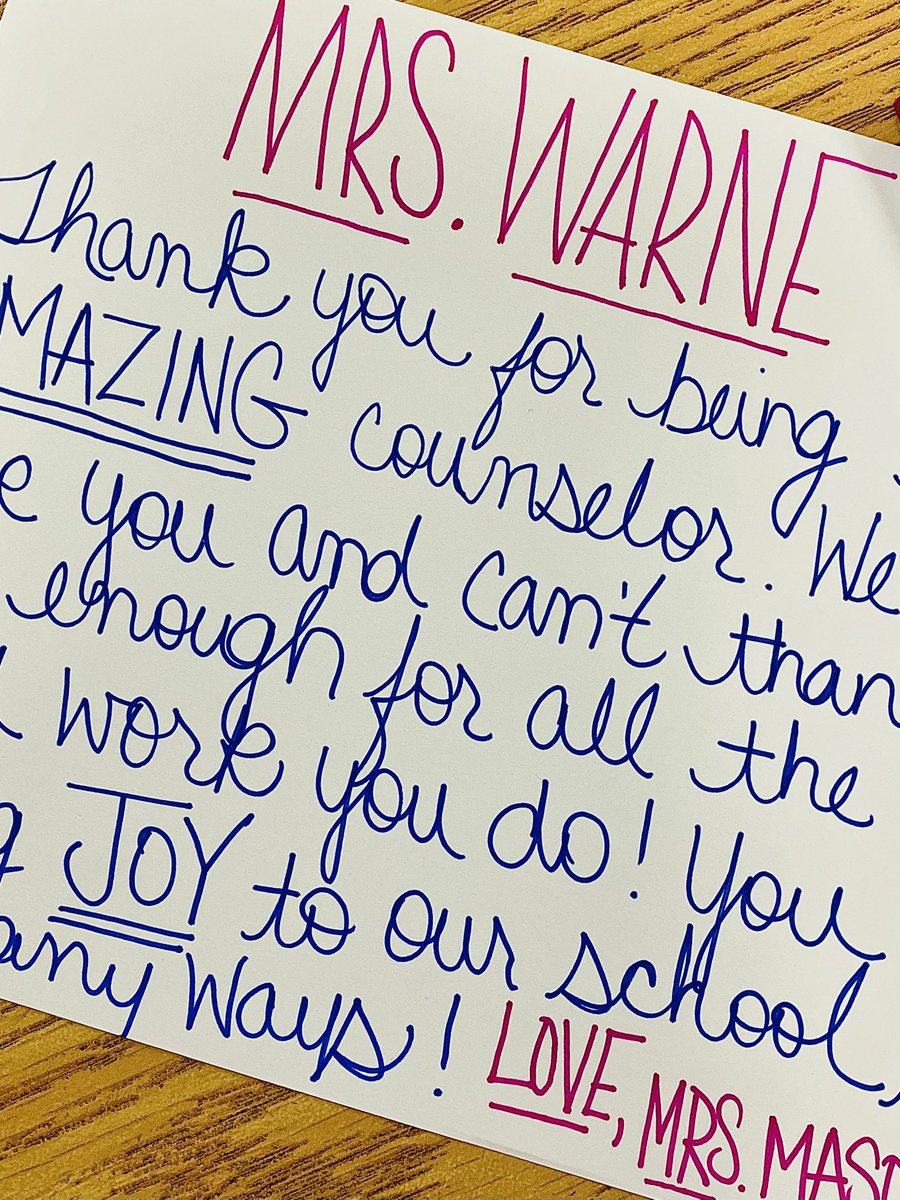 MRS. WARNE
Thank you for being
MAZING counselor. We
e you and can't than
enough for all the
work you do! You
g JOY to our school,
any ways!
LOVE, MRS. MAS